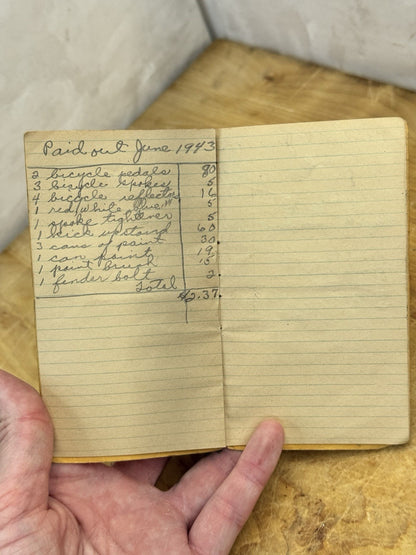 Paid out June 1943
2 bicycle pedals 80
3 bicycle spokes 5
4 bicycle reflectors 16
1 red white blue 5
1 spoke tightener 5
1 kick upstand 60
3 cans of paint 30
1 can paint 19
1 paint brush
1 fender bolt 2
Total
$2.37